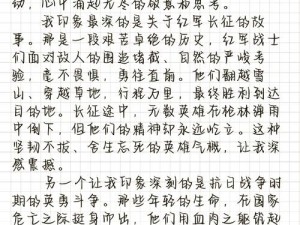 动，心中涌起无尽的敬意和思考。
我印象最深的是关于红军长征的故
事。那是一段艰苦卓绝的历史，红军战士
们面对敌人的围追堵截、自然的严峻考
验，毫不畏惧，勇往直前。他们翻越雪
山、穿越草地，行程万里，最终胜利到达
目的地。长征途中，无数英雄在枪林弹雨
中倒下，但他们的精神却永远屹立。这种
坚韧不拔、舍生忘死的英雄气概，让我深
感震撼。
另一个让我印象深刻的是抗日战争时
期的英勇斗争。那些年轻的生命，在国家
危亡之际挺身而出，他们用血肉之躯筑起